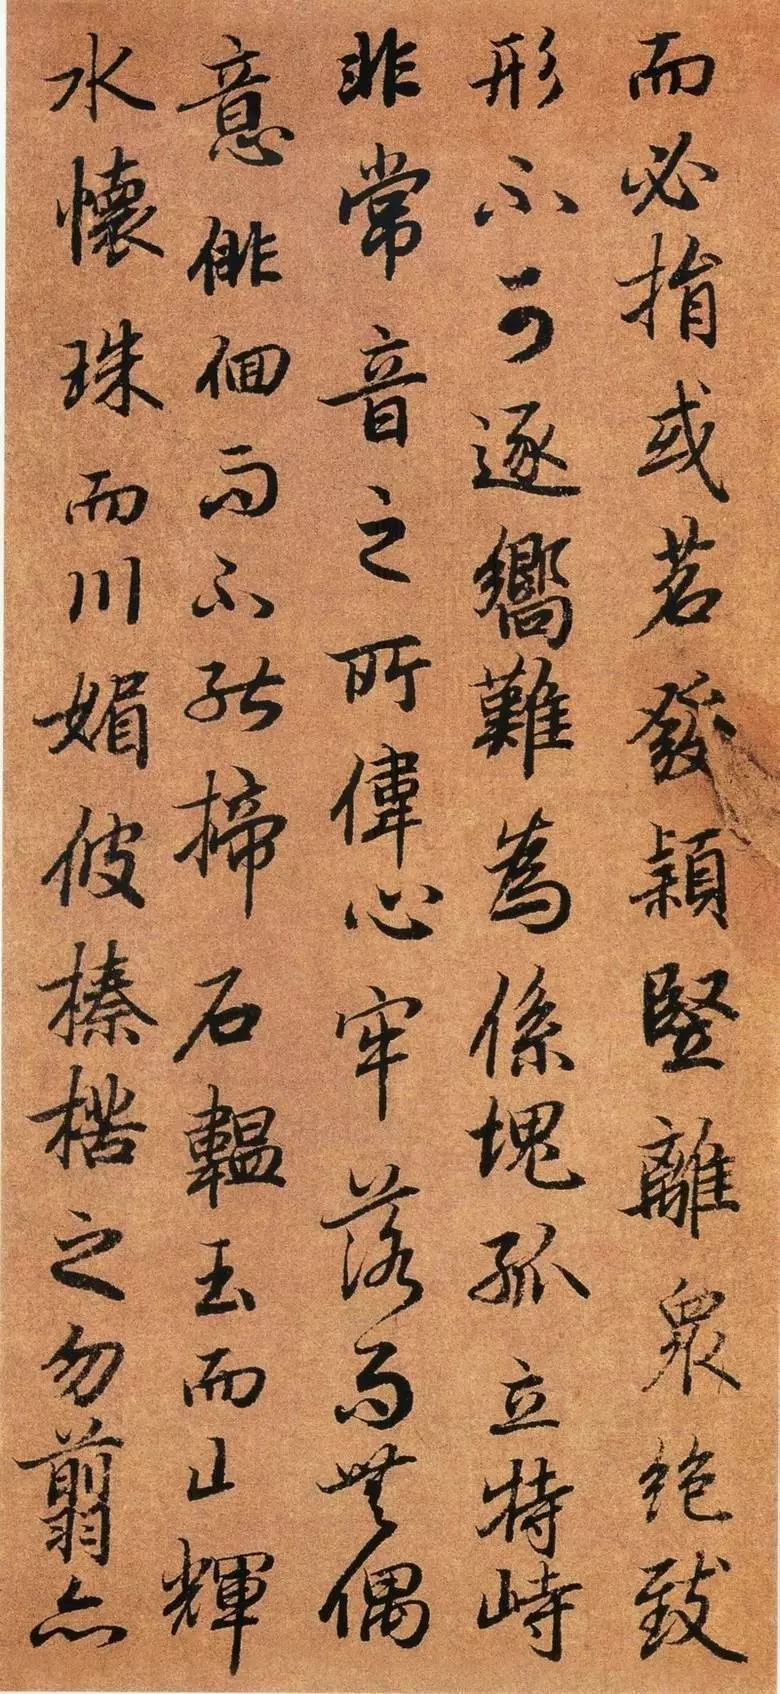 而必捐或苕發穎竪離衆絶致
形不可逐嚮難為係塊孤立特峙
非常音之所偉心牢落而無偶
意俳佪而不能掃石韞玉而山輝
水懷珠而川媚彼榛楛之勿翦亦